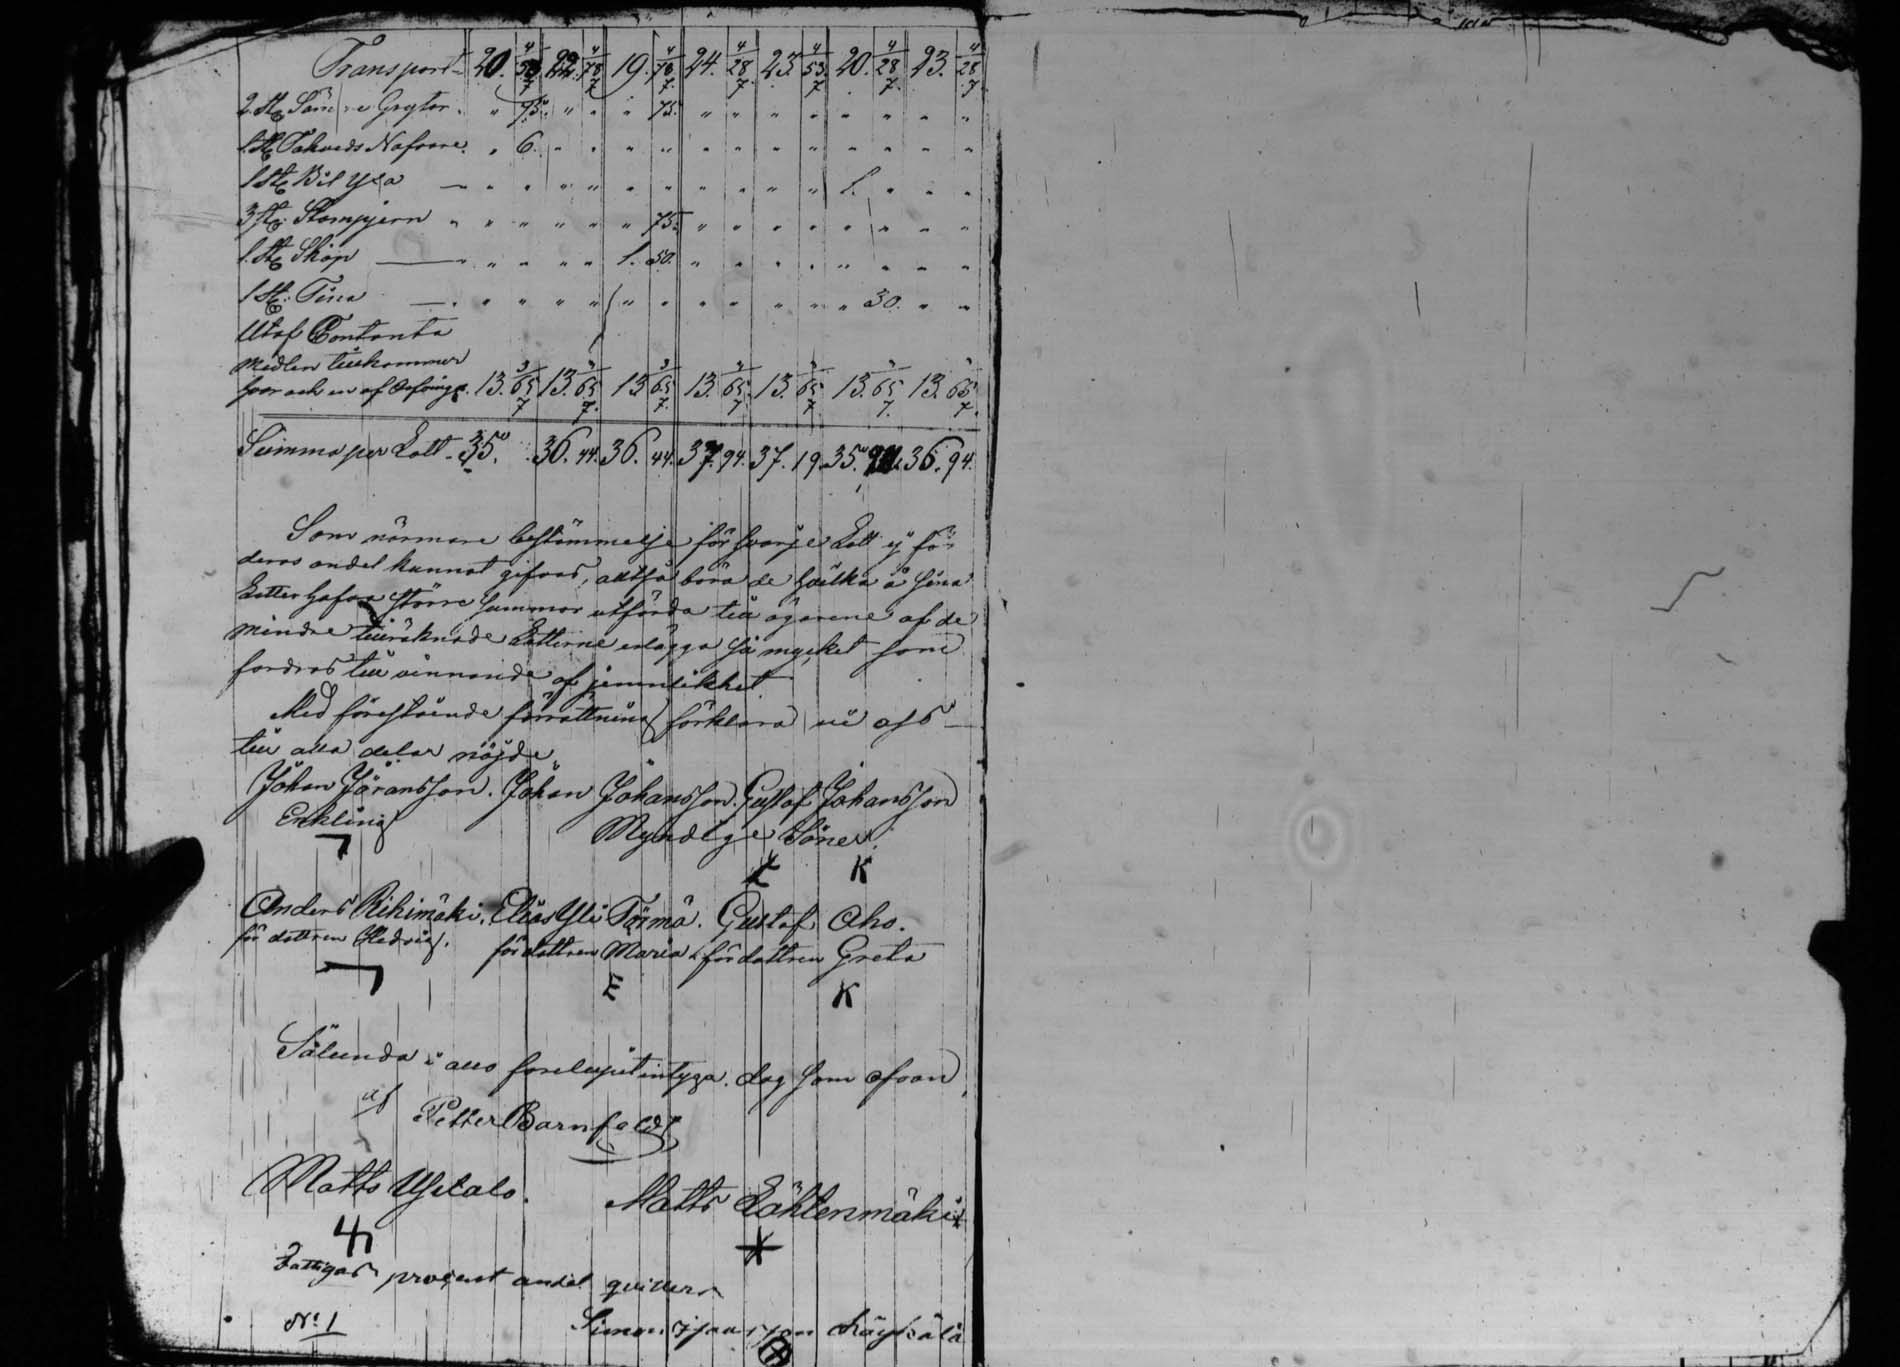 Transport 20. 53 4/7 22. 78 4/7 19. 78 4/7 24. 28 4/7 23. 53 4/7 20. 28 4/7 23. 28 4/7
2 St Grytor. " 75. " " " 75. " " " " " " " "
1 St Nafvare. " 6. " " " " " " " " " " " "
1 St Bil Yxa — " " " " " " " " " " 1. " " "
3 St: Stampjern " " " " " 75. " " " " " " " "
1. St Skåp — " " " " 1. 50. " " " " " " " "
1 St: Tina — " " " " " " " " " " " 30. " "
Utaf Contanta
Medlen tillkommer
hvar och en af Arfvinge. 13. 65 3/7 13. 65 3/7 13 65 3/7 13. 65 3/7 13. 65 3/7 13. 65 3/7 13. 65 3/7
Summa per Lott - 35. " 36. 44. 36. 44. 37. 94. 37. 19. 35. 94. 36. 94.
Som närmare bestämmelse för hvarje Lott ej
deras andel kunnat gifvas, alltså böra de hvilka å sina
Lotter hafva större summor utförda till ägarene af de
mindre tillräknade Lotterne erlägga så mycket som
fordras till vinnande af jemnlikhet.
Med förestående förrättning förklara vi oss
till alla delar nöjde.
Johan Jöransson. Johan Johansson. Gustaf Johansson
Enkling Myndige Söner.
K
Anders Rihimäki. Elias Yli Törmä. Gustaf Aho.
för dottren Hedvig. för dottren Maria. för dottren Greta
E K
Sålunda i allo förelupit intyga. dag som ofvan
Petter Barnfeldt
Matts Ylitalo. Matts Lähtenmäki
Fattigas procent andel qvitteras
No 1 Simon